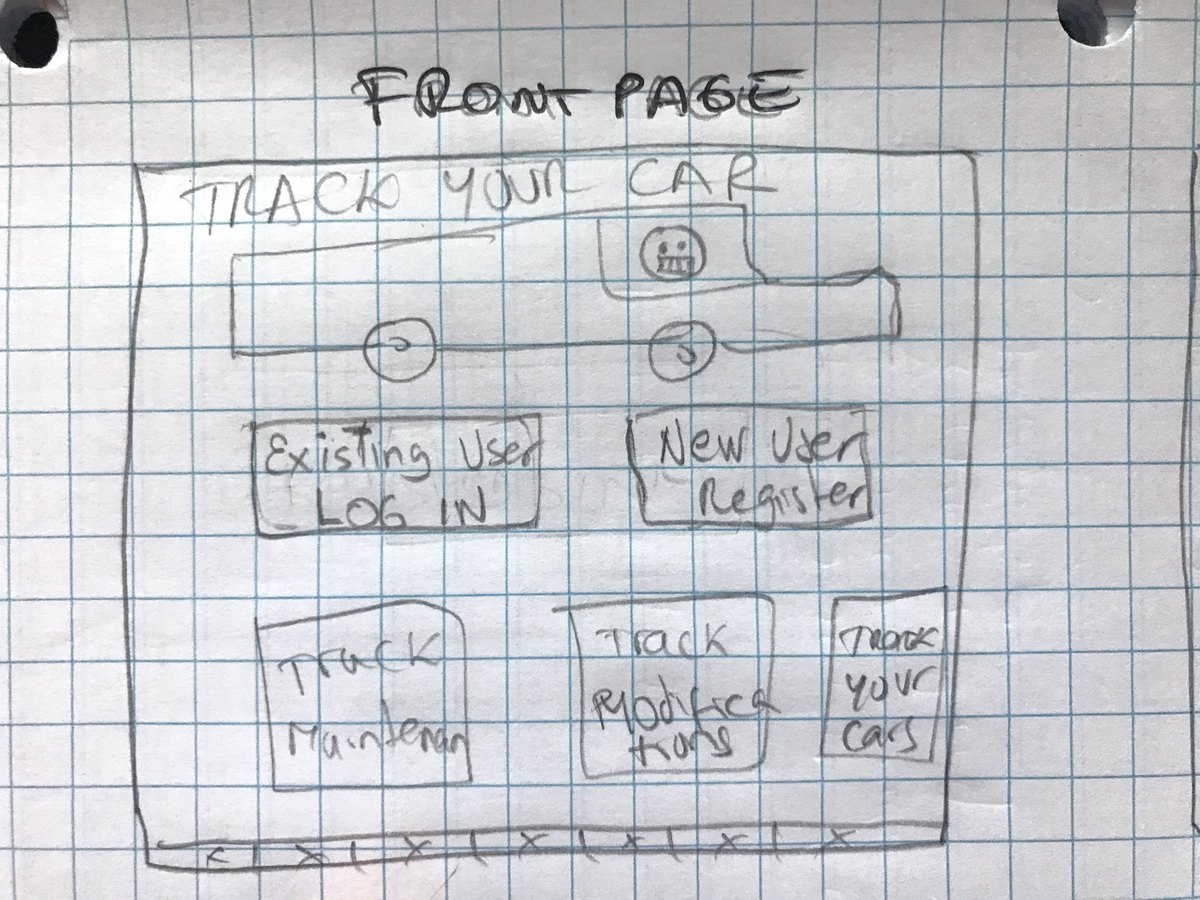 FRONT PAGE
TRACK YOUR CAR
Existing User
LOG IN
New User
Register
Track
Maintenan
Track
Modifica
tions
Track
your
cars
x | x | x | x | x | x | x